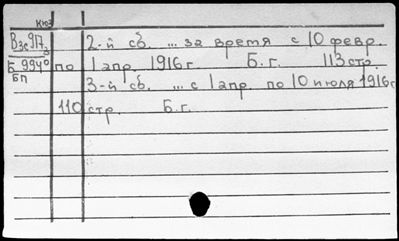 КЮЗ
Взс917з 2-й сб. ... за время с 10 февр.
Б 994° по 1 апр. 1916 г. Б. г. 113 стр.
БП 3-й сб. ... с 1 апр. по 10 июля 1916 г
110 стр. Б. г.